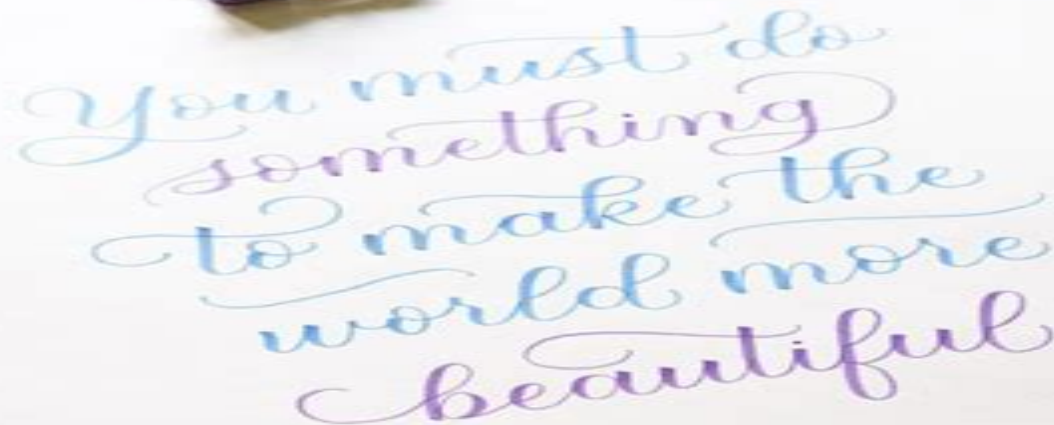 You must do
something
to make the
world more
beautiful